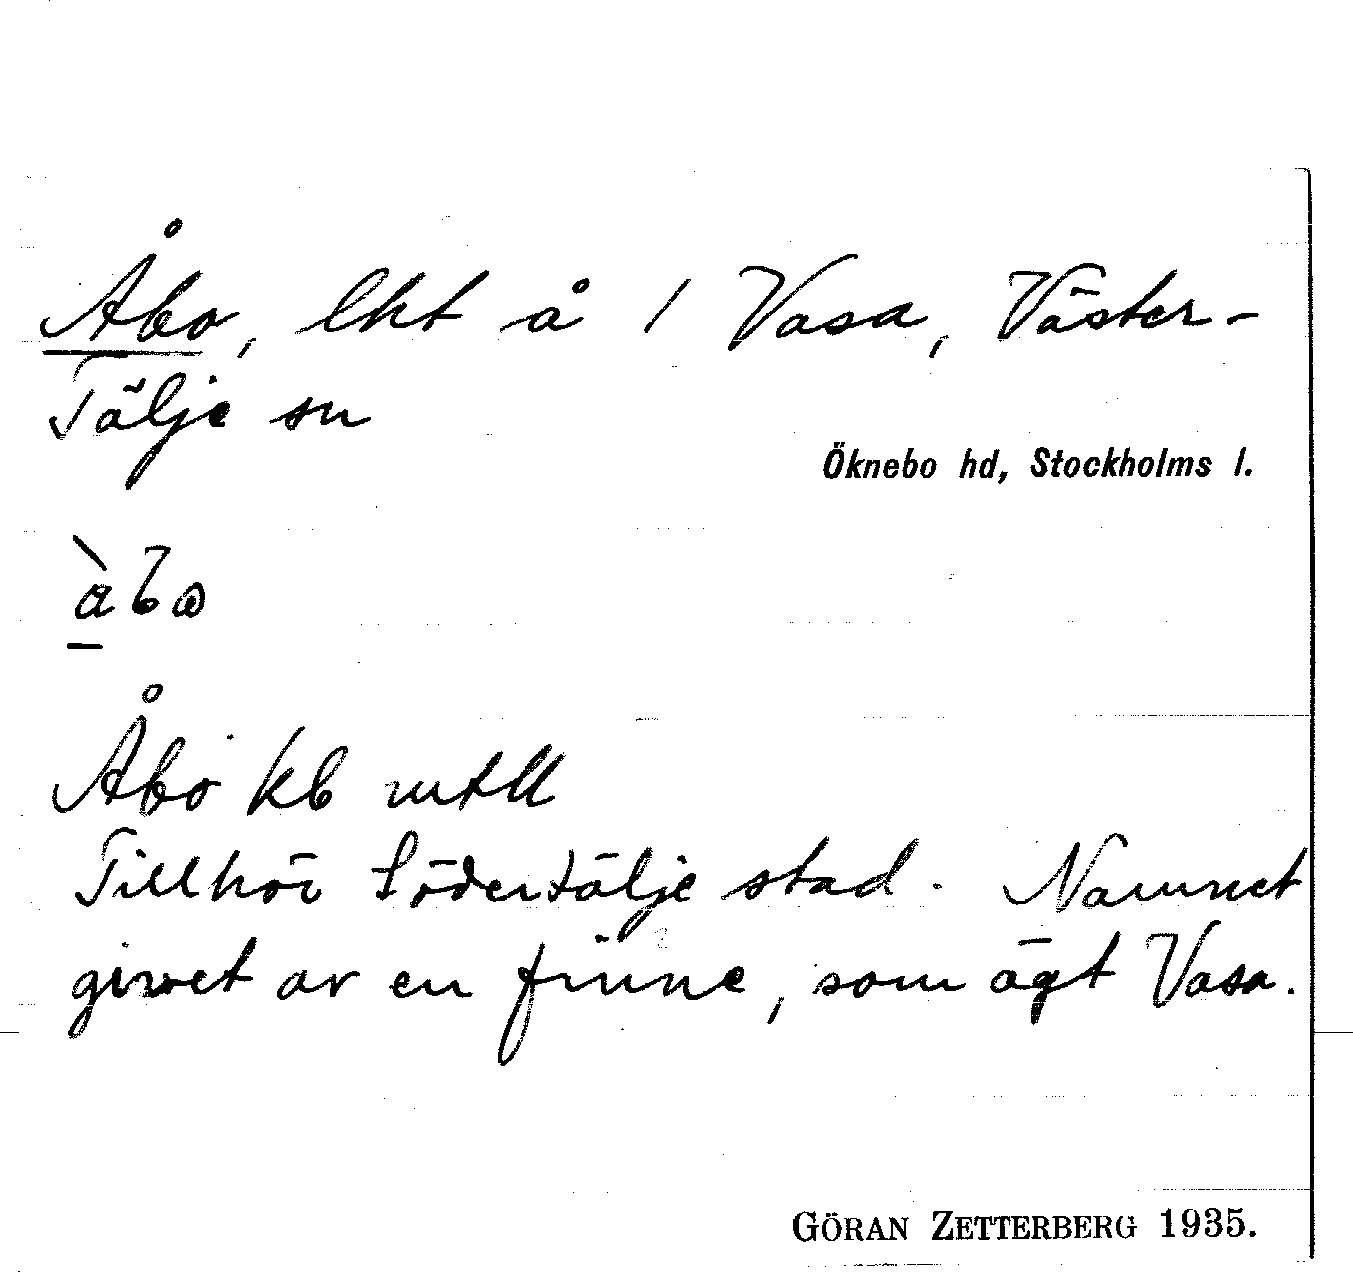 Åbo, lht å 1 Vasa, Väster-
Tälje sn
Öknebo hd, Stockholms l.
àbω
Åbo kb mtll
Tillhör Södertälje stad. Namnet
givet av en finne, som ägt Vasa.
GÖRAN ZETTERBERG 1935.